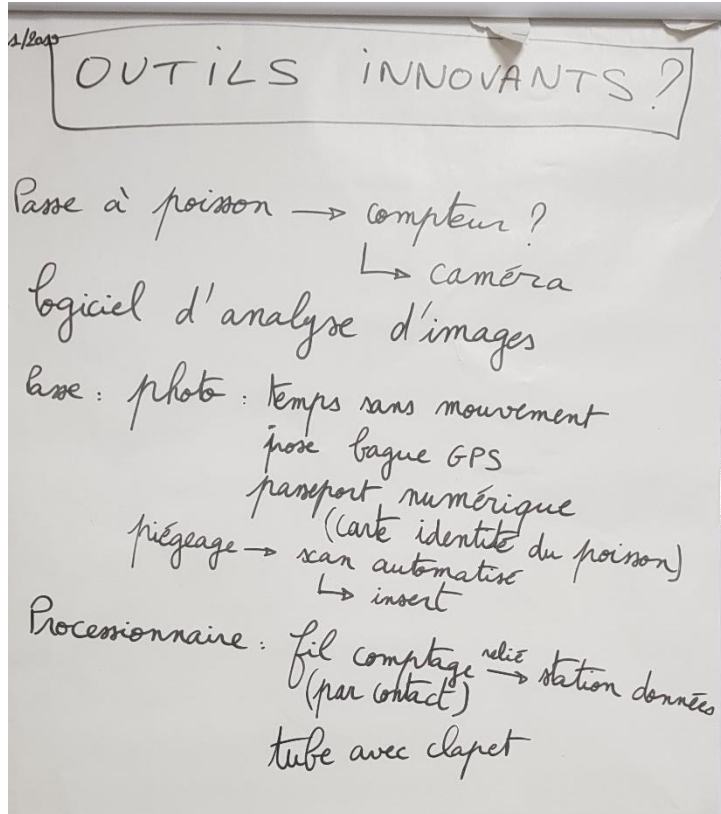 OUTILS INNOVANTS ?
Passe à poisson → compteur ?
↳ caméra
logiciel d'analyse d'images
Passe : photo : temps sans mouvement
pose bague GPS
passeport numérique
(carte identité du poisson)
piégeage → scan automatisé
↳ insert
Processionnaire : fil comptage relié → station données
(par contact)
tube avec clapet